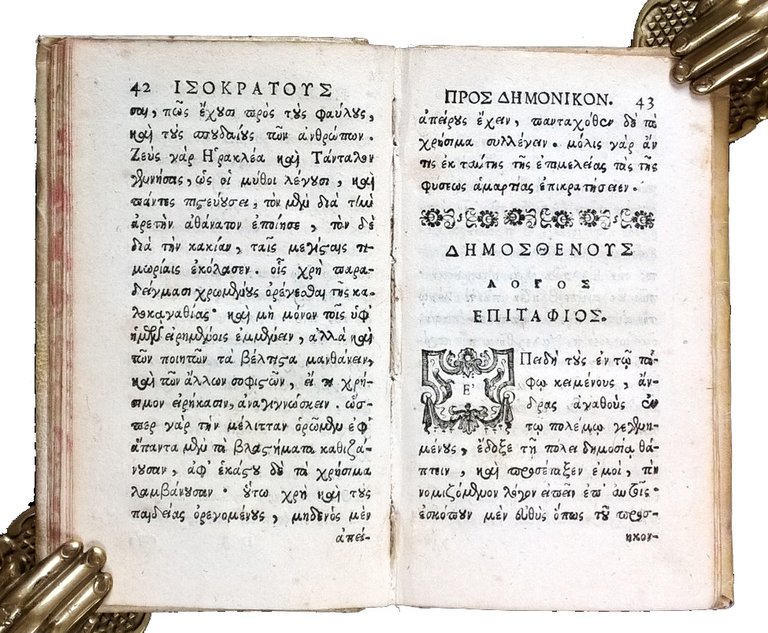 42 ΙΣΟΚΡΑΤΟΥΣ
σαι, πῶς ἔχυσι πρὸς τὺς φαύλυς,
καὶ τὺς σπυδαίυς τῶν ἀνθρώπων.
Ζεὺς γὰρ Ἡρακλέα καὶ Τάνταλον
γεννήσας, ὡς οἱ μύθοι λέγυσι, καὶ
πάντες πιστεύυσι, τὸν μὲν διὰ τὴν
ἀρετὴν ἀθάνατον ἐποίησε, τὸν δὲ
διὰ τὴν κακίαν, ταῖς μεγίσταις τι-
μωρίαις ἐκόλασεν. οἷς χρὴ παρα-
δείγμασι χρωμένυς ὀρέγεσθαι τῆς κα-
λοκαγαθίας· καὶ μὴ μόνον τοῖς ὑφ'
ἡμῶν εἰρημένοις ἐμμένειν, ἀλλὰ καὶ
τῶν ποιητῶν τὰ βέλτιστα μανθάνειν,
καὶ τῶν ἄλλων σοφιστῶν, εἴ τι χρή-
σιμον εἰρήκασιν, ἀναγινώσκειν. ὥσ-
περ γὰρ τὴν μέλιτταν ὁρῶμεν ἐφ'
ἅπαντα μὲν τὰ βλαστήματα καθιζά-
νυσαν, ἀφ' ἑκάστυ δὲ τὰ χρήσιμα
λαμβάνυσαν· ὕτω χρὴ καὶ τὺς
παιδείας ὀρεγομένυς, μηδενὸς μὲν
ἀπεί-
ΠΡΟΣ ΔΗΜΟΝΙΚΟΝ. 43
ἀπείρυς ἔχειν, πανταχόθεν δὲ τὰ
χρήσιμα συλλέγειν. μόλις γὰρ ἄν
τις ἐκ ταύτης τῆς ἐπιμελείας τὰς τῆς
φύσεως ἁμαρτίας ἐπικρατήσειεν.
ΔΗΜΟΣΘΕΝΟΥΣ
ΛΟΓΟΣ
ΕΠΙΤΑΦΙΟΣ.
Ε'Πειδὴ τὺς ἐν τῷ τά-
φῳ κειμένυς, ἄν-
δρας ἀγαθοὺς ἐν
τῷ πολέμῳ γεγενη-
μένυς, ἔδοξε τῇ πόλει δημοσίᾳ θά-
πτειν, καὶ προσέταξεν ἐμοὶ, τὸν
νομιζόμενον λόγον εἰπεῖν ἐπ' αὐτοῖς·
ἐσκόπυν μὲν εὐθὺς ὅπως τῦ προσ-
ηκον-